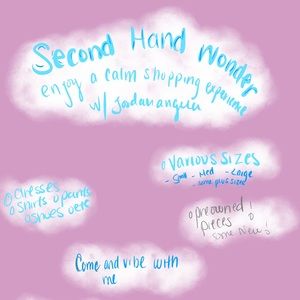 Second Hand Wonder
enjoy a calm shopping experience
w/ Jordanangeles
o Various SIZES
- Small - Med - Large
- some plus sizes
o dresses
o shirts o pants
o shoes
o preowned!
pieces o
some new!
Come and vibe with
me